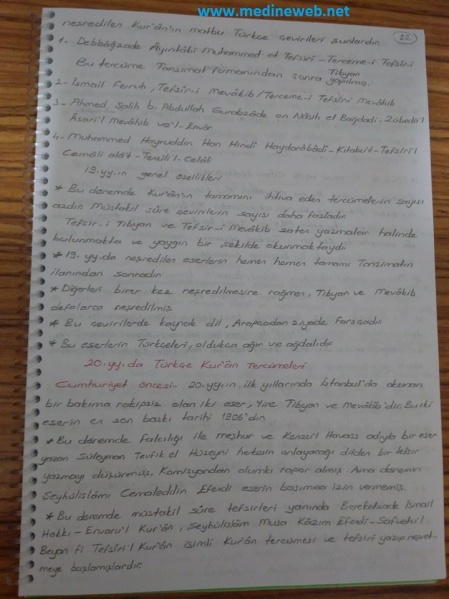 www.medineweb.net
22
neşredilen Kur'ân'ın matbu Türkçe çevirileri şunlardır.
1- Debbâğzade Ayıntâbi Muhammed et Tefsiri - Terceme-i Tefsiri Tibyan
Bu tercüme Tanzimat fermanından sonra yapılmış.
2- İsmail Ferruh, Tefsir-i Mevâkib / Terceme-i Tefsiri Mevâkib
3- Ahmed Salih b. Abdullah en Nakşi el Bağdadi - Zübedü'l
Asari'l Mevâhib ve'l-Envâr
4- Muhammed Hayruddin Han Hindi Haydarâbâdi - Kitabü't-Tefsiri'l
Cemâli alâ't-Tenzîli'l-Celâli
19.yy.ın genel özellikleri
* Bu dönemde Kur'ân'ın tamamını ihtiva eden tercümelerin sayısı
azdır. Müstakil sûre çevirilerin sayısı daha fazladır
Tefsir-i Tibyan ve Tefsir-i Mevâkib zaten yazmalar halinde
bulunmakta ve yaygın bir şekilde okunmaktaydı
* 19. yy.da neşredilen eserlerin hemen hemen tamamı Tanzimatın
ilanından sonradır
* Diğerleri birer kez neşredilmesine rağmen, Tibyan ve Mevâkib
defalarca neşredilmiş
* Bu çevirilerde kaynak dil, Arapçadan ziyade Farsçadır
* Bu eserlerin Türkçeleri, oldukça ağır ve ağdalıdır
20.yy.da Türkçe Kur'ân Tercümeleri
Cumhuriyet öncesi- 20.yy.ın ilk yıllarında İstanbul'da okunan
bir bakıma rakipsiz olan iki eser, yine Tibyan ve Mevâkib'dir. Bu iki
eserin en son baskı tarihi 1906'dır
* Bu dönemde falcılığı ile meşhur ve Kenzü'l Havass adıyla bir eser
yazan Süleyman Tevfik el Hüseyni herkesin anlayacağı dilden bir tefsir
yazmayı düşünmüş, Komisyondan olumlu rapor almış. Ama dönemin
Şeyhülislâmı Cemaleddin Efendi eserin basımına izin vermemiş.
* Bu dönemde müstakil sûre tefsirleri yanında Bereketzade İsmail
Hakkı - Envaru'l Kur'ân, Şeyhülislâm Musa Kâzım Efendi - Safvetü'l
Beyan fi Tefsiri'l Kur'ân isimli Kur'ân tercümesi ve tefsiri yazıp neşret-
meye başlamışlardır.